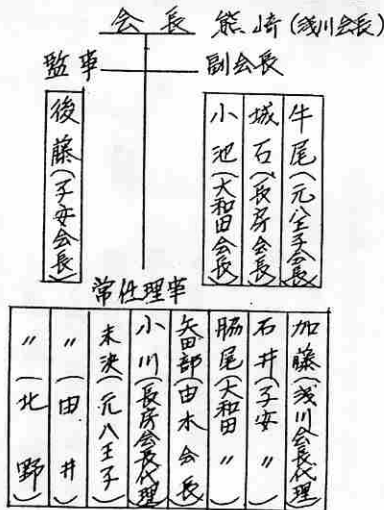 会長 熊崎(浅川会長)
監事
副会長
牛尾(元八王子会長)
城石(長房会長)
小池(大和田会長)
後藤(子安会長)
常任理事
加藤(浅川会長代理)
石井(子安 〃)
脇尾(大和田 〃)
矢田部(由木会長)
小川(長房会長代理)
未決(元八王子)
〃(由井)
〃(北野)